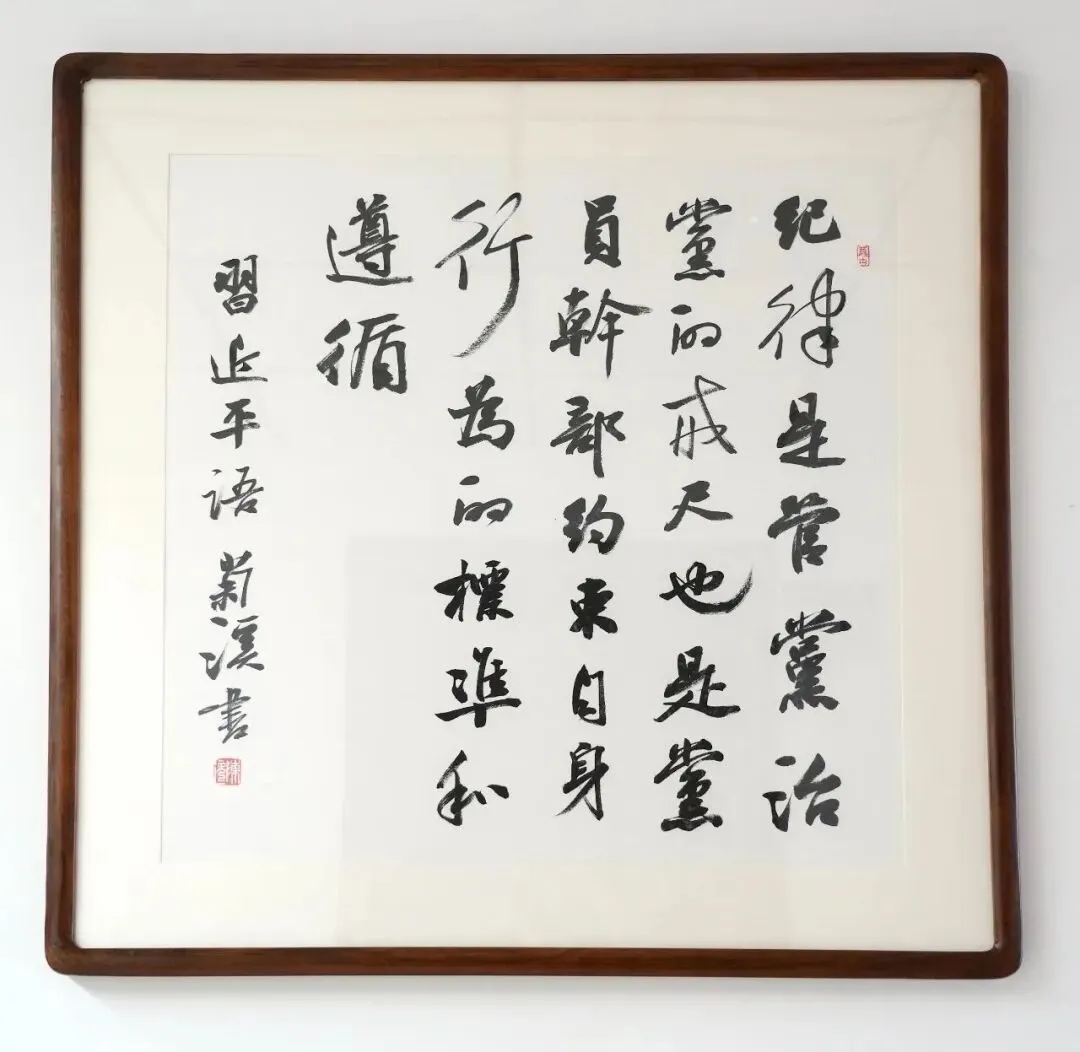 紀律是管黨治
黨的戒尺也是黨
員幹部約束自身
行為的標準和
遵循
習近平語 菊溪書